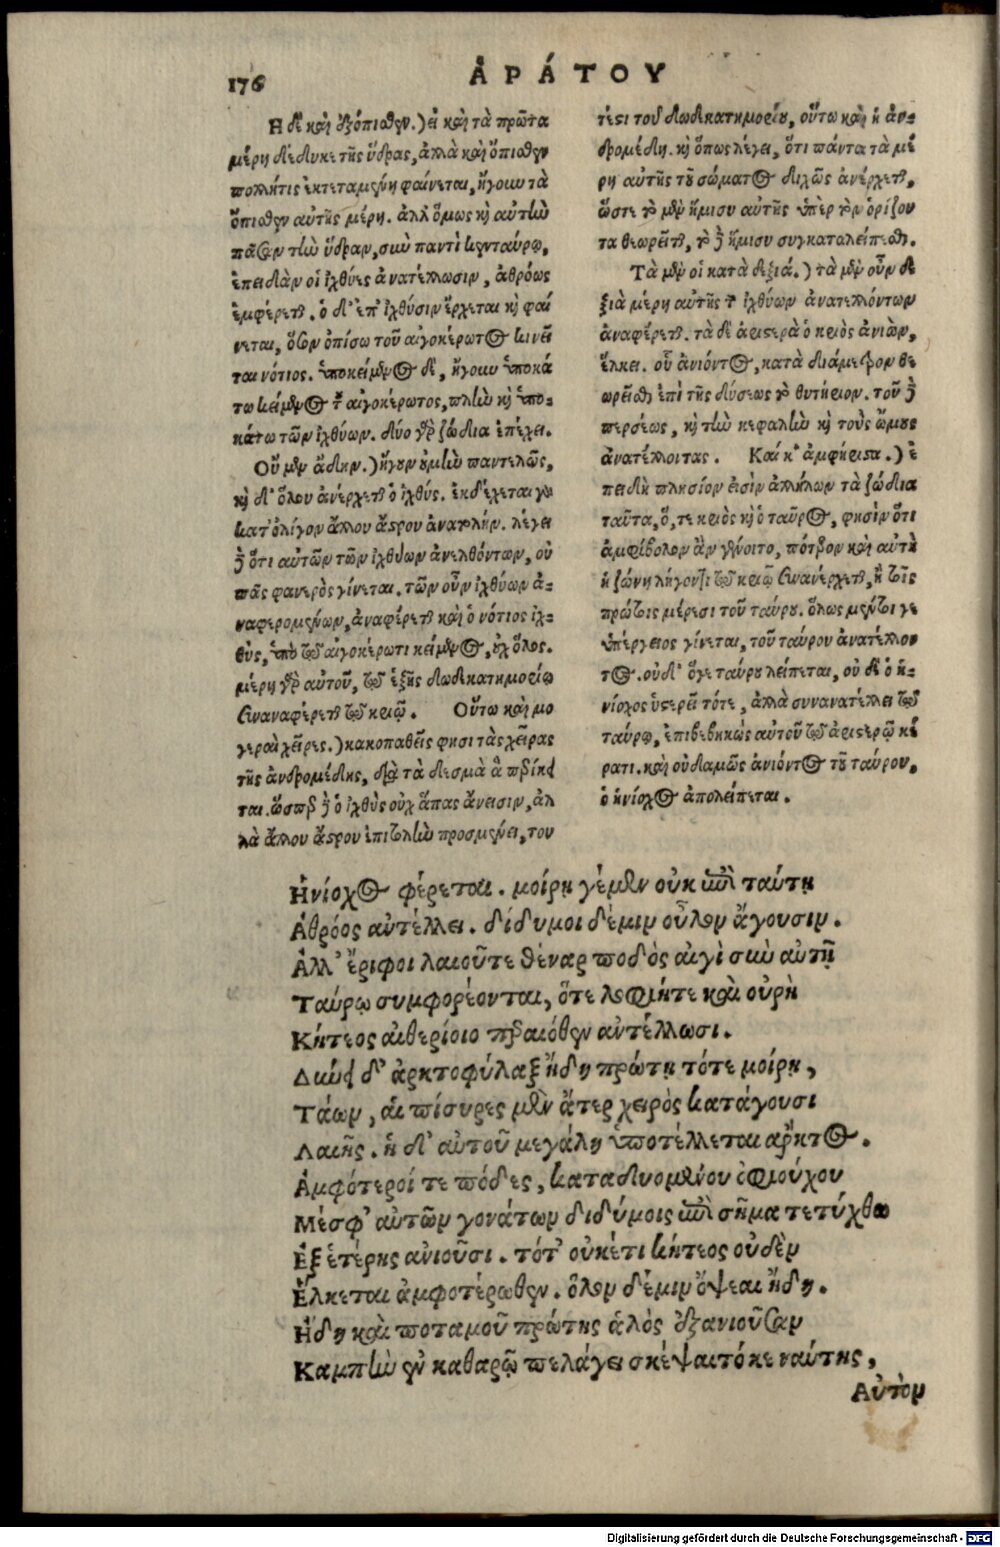 176
ἈΡΆΤΟΥ
Η δὲ καὶ ἐξόπιθεν.) εἰ καὶ τὰ πρῶτα
μέρη δέδυκε τῆς ὕδρας, ἀλλὰ καὶ ὄπιθεν
πολλή τις ἐκτεταμένη φαίνεται, ἤγουν τὰ
ὄπιθεν αὐτῆς μέρη. ἀλλ' ὅμως κὶ αὐτὴν
πᾶσαν τὴν ὕδραν, σὺν παντὶ κενταύρῳ,
ἐπειδὰν οἱ ἰχθύες ἀνατέλλωσιν, ἀθρόως
ἐμφέρεται. ὁ δ' ἐπ' ἰχθύσιν ἔρχεται κὶ φαί
νεται, ὅσον ὀπίσω τοῦ αἰγοκέρωτος κινεῖ
ται νότιος. ὑποκείμενος δὲ, ἤγουν ὑποκά
τω κείμενος τοῦ αἰγοκέρωτος, πλὴν κὶ ὑπο-
κάτω τῶν ἰχθύων. δύο γὰρ ζώδια ἐπέχει.
Οὐ μὲν ἄδην.) ἤγουν οὐ μὴν παντελῶς,
κὶ δι' ὅλου ἀνέρχεται ὁ ἰχθύς. ἐκδέχεται γὰρ
κατ' ὀλίγον ἄλλου ἄστρου ἀνατολήν. λέγει
δὲ ὅτι αὐτῶν τῶν ἰχθύων ἀνελθόντων, οὐ
πᾶς φανερὸς γίνεται. τῶν οὖν ἰχθύων ἀ-
ναφερομένων, ἀναφέρεται καὶ ὁ νότιος ἰχ-
θὺς, ὑπὸ τῷ αἰγοκέρωτι κείμενος, οὐχ ὅλος.
μέρη γὰρ αὐτοῦ, τῷ ἑξῆς δωδεκατημορίῳ
συναναφέρεται τῷ κριῷ. Οὕτω καὶ μο
γεραὶ χεῖρες.) κακοπαθεῖς φησι τὰς χεῖρας
τῆς ἀνδρομέδης, διὰ τὰ δεσμὰ ἃ περίκει
ται. ὥσπερ δὲ ὁ ἰχθὺς οὐχ ἅπας ἄνεισιν, ἀλ
λὰ ἄλλου ἄστρου ἐπιτολὴν προσμένει, του
τέστι τοῦ δωδεκατημορίου, οὕτω καὶ ἡ ἀν-
δρομέδη. κὶ ὅπως λέγει, ὅτι πάντα τὰ μέ
ρη αὐτῆς τοῦ σώματος διχῶς ἀνέρχεται,
ὥστε τὸ μὲν ἥμισυ αὐτῆς ὑπὲρ τὸν ὁρίζον
τα θεωρεῖται, τὸ δὲ ἥμισυ συγκαταλείπεσθαι.
Τὰ μὲν οἱ κατὰ δεξιά.) τὰ μὲν οὖν δε
ξιὰ μέρη αὐτῆς τῶν ἰχθύων ἀνατελλόντων
ἀναφέρεται. τὰ δὲ ἀριστερὰ ὁ κριὸς ἀνιὼν,
ἕλκει. οὗ ἀνιόντος, κατὰ διάμετρον θε
ωρεῖσθαι ἐπὶ τῆς δύσεως τὸ θυτήριον. τοῦ δὲ
περσέως, κὶ τὴν κεφαλὴν κὶ τοὺς ὤμους
ἀνατέλλοντας. Καί κ' ἀμφήριστα.) ἐ
πειδὴ πλησίον εἰσὶν ἀλλήλων τὰ ζώδια
ταῦτα, ὅ, τε κριὸς κὶ ὁ ταῦρος, φησὶν ὅτι
ἀμφίβολον ἂν γένοιτο, πότερον καὶ αὐτὴ
ἡ ζώνη λήγοντι τῷ κριῷ συνανέρχεται, ἢ τοῖς
πρώτοις μέρεσι τοῦ ταύρου. ὅλως μέντοι γε
ὑπέργειος γίνεται, τοῦ ταύρου ἀνατέλλον
τος. οὐδ' ὅγε ταύρου λείπεται, οὐ δὲ ὁ ἡ-
νίοχος ὑστερεῖ τότε, ἀλλὰ συνανατέλλει τῷ
ταύρῳ, ἐπιβεβηκὼς αὐτοῦ τῷ ἀριστερῷ κέ
ρατι. καὶ οὐδαμῶς ἀνιόντος τοῦ ταύρου,
ὁ ἡνίοχος ἀπολείπεται.
Ἡνίοχος φέρεται. μοίρῃ γέ μὲν οὐκ ἐπὶ ταύτῃ
Ἀθρόος ἀντέλλει. δίδυμοι δέ μιν οὖλον ἄγουσιν.
Ἀλλ' ἔριφοι λαιοῦτε θέναρ ποδὸς αἰγὶ σὺν αὐτῇ
Ταύρῳ συμφορέονται, ὅτε λοφιήτε καὶ οὐρὴ
Κήτεος αἰθερίοιο περαιόθεν ἀντέλλωσι.
Δύνει δ' ἀρκτοφύλαξ ἤδη πρώτῃ τότε μοίρῃ,
Τάων, αἱ πίσυρες μὲν ἄτερ χειρὸς κατάγουσι
Λαιῆς. ἡ δ' αὐτοῦ μεγάλη ὑποτέλλεται ἄρκτος.
Ἀμφότεροί τε πόδες, καταδυομένου ὀφιούχου
Μέσφ' αὐτῶν γονάτων διδύμοις ἐπὶ σῆμα τετύχθω
Ἐξ ἑτέρης ἀνιοῦσι. τότ' οὐκέτι κήτεος οὐδὲν
Ἕλκεται ἀμφοτέρωθεν. ὅλον δέ μιν ὄψεαι ἤδη.
Ἤδη καὶ ποταμοῦ πρώτης ἁλὸς ἐξανιοῦσαν
Καμπὴν ἐν καθαρῷ πελάγει σκέψαιτό κε ναύτης,
Αὐτὸν
Digitalisierung gefördert durch die Deutsche Forschungsgemeinschaft - DFG